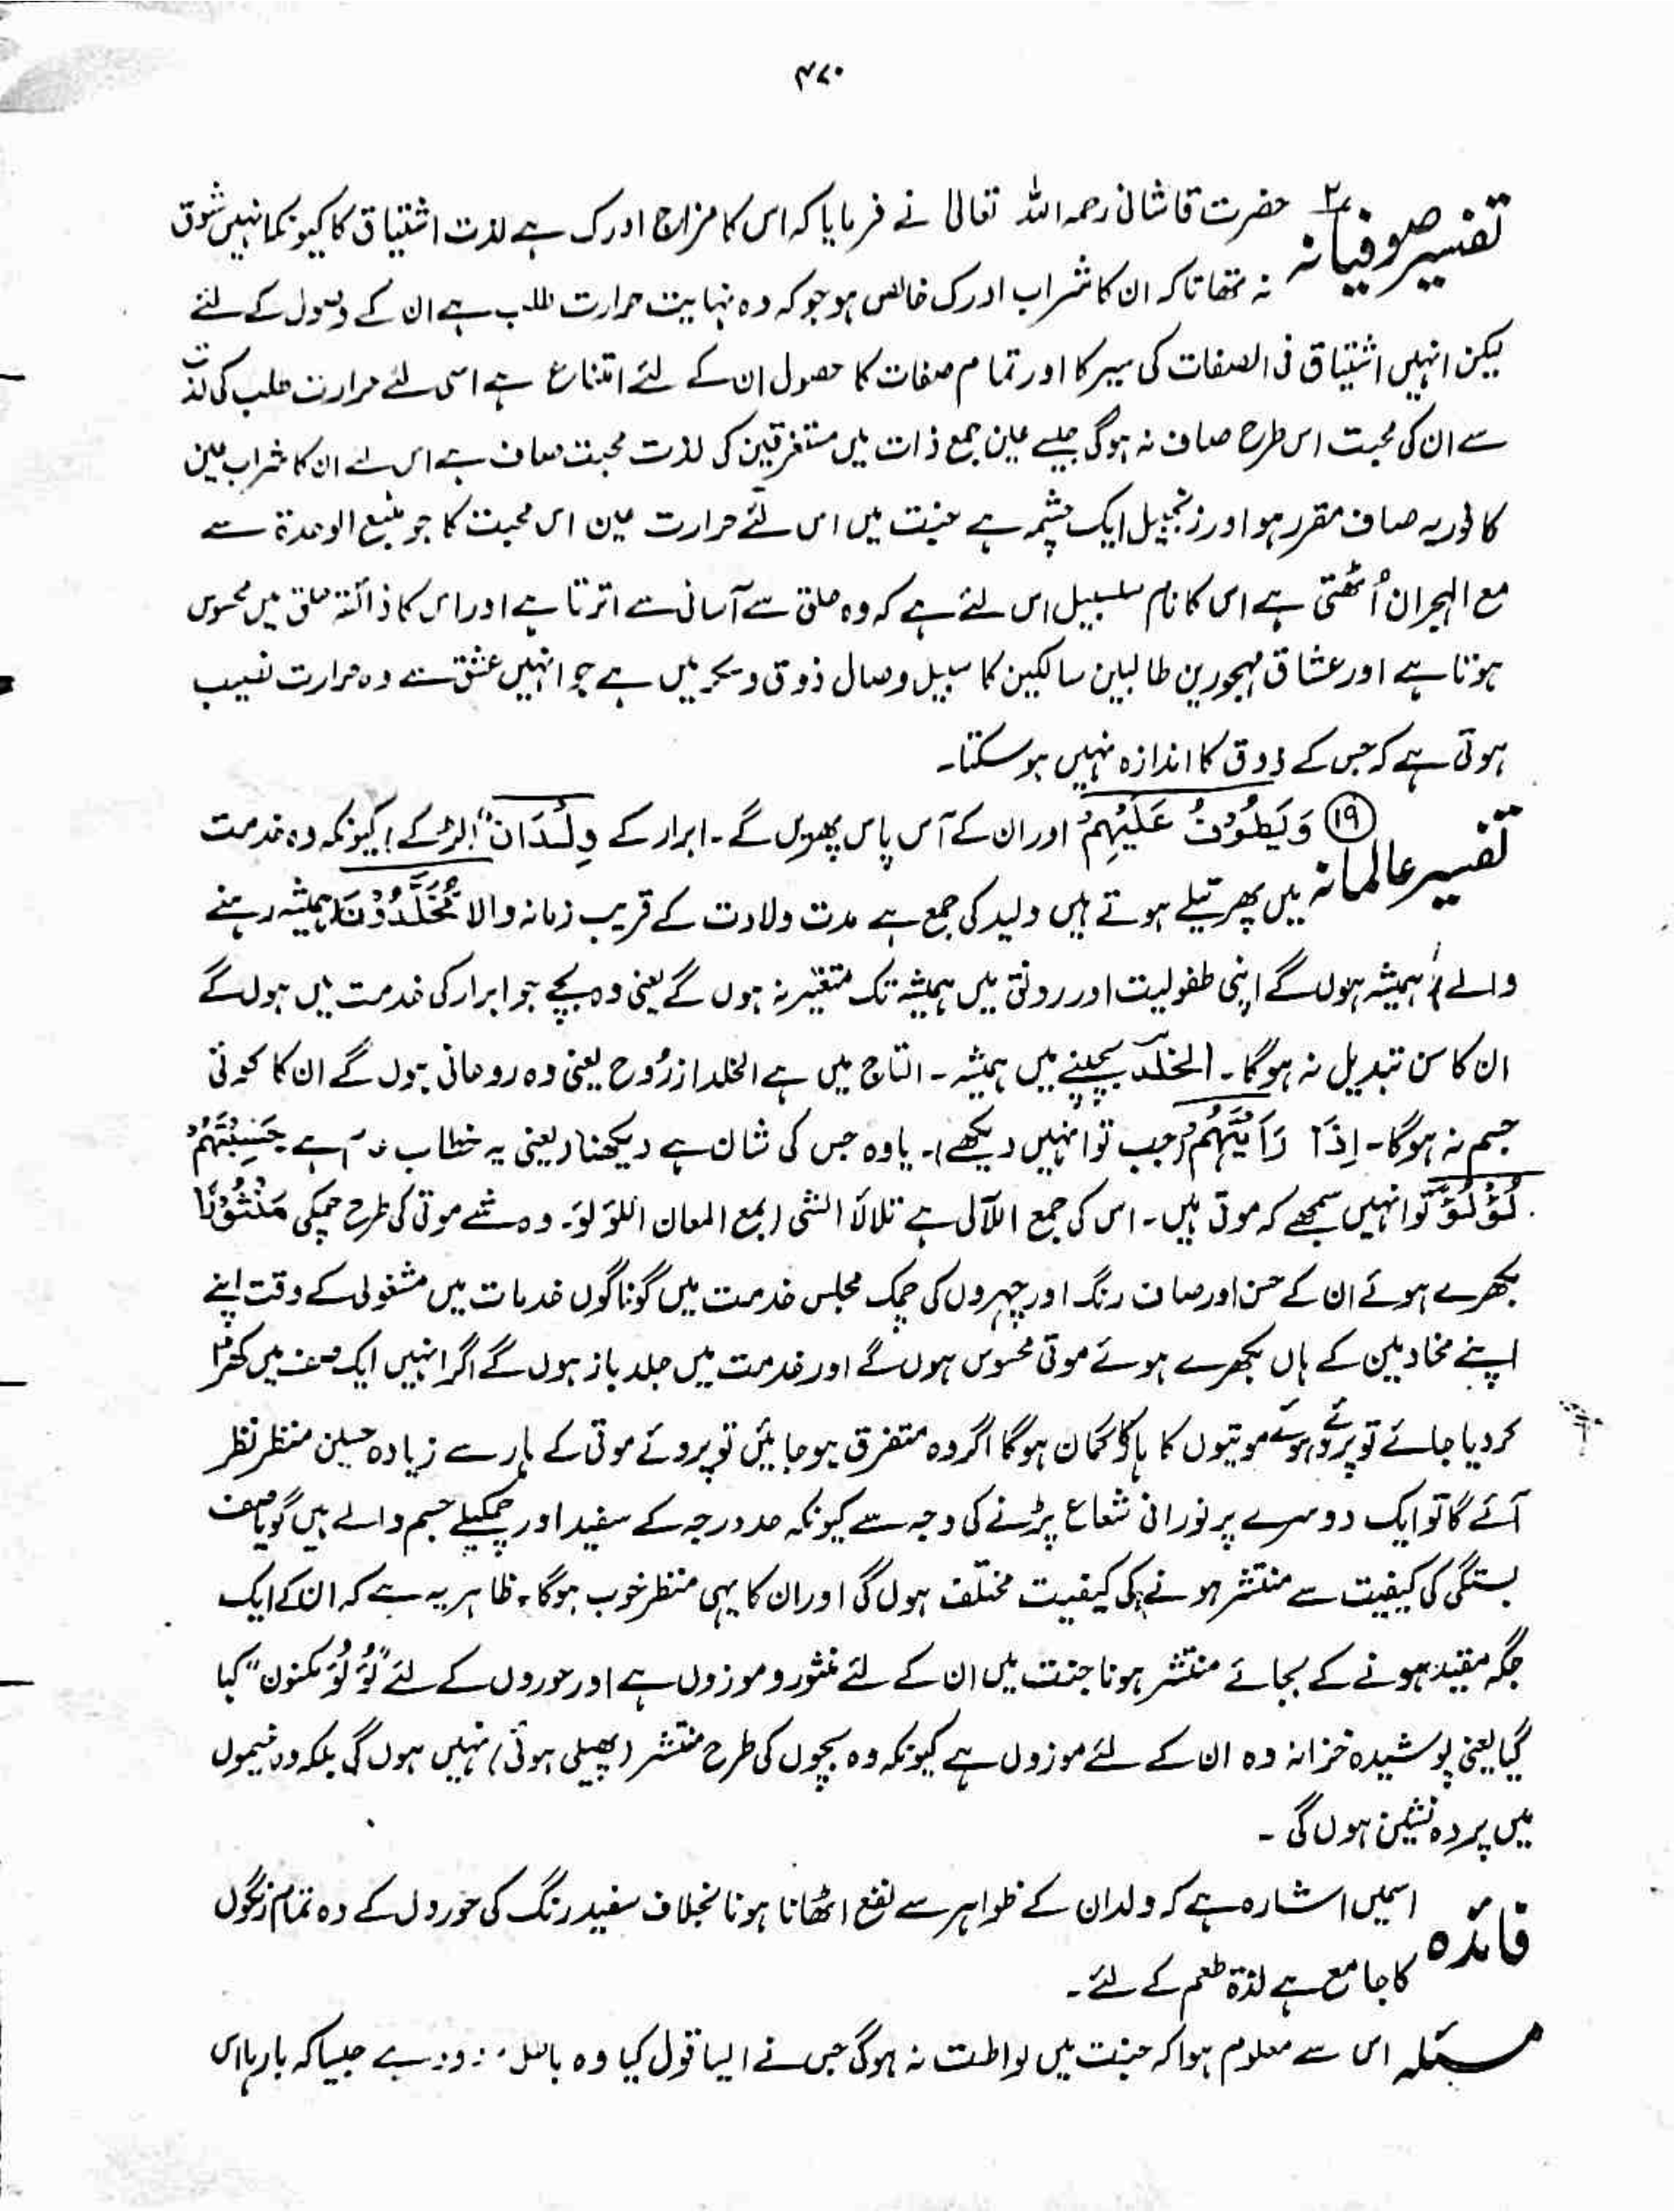 ۴۷۰
تفسیر صوفیانہ ۲ حضرت قاشانی رحمہ اللہ تعالیٰ نے فرمایا کہ اس کا مزاج ادرک ہے لذت اشتیاق کا کیونکہ انہیں شوق
نہ تھا تاکہ ان کا شراب ادرک خالص ہو جو کہ وہ نہایت حرارت طلب ہے ان کے وصول کے لئے
لیکن انہیں اشتیاق فی الصفات کی سیر کا اور تمام صفات کا حصول ان کے لئے امتناع ہے اسی لئے حرارت طلب کی لذت
سے ان کی محبت اس طرح صاف نہ ہوگی جیسے عین جمع ذات میں مستغرقین کی لذت محبت صاف ہے اس لئے ان کا شراب عین
کافوریہ صاف مقرر ہوا اور زنجبیل ایک چشمہ ہے جنت میں اس لئے حرارت عین اس محبت کا جو منبع الوحدۃ سے
مع الہجران اُٹھتی ہے اس کا نام سلسبیل اس لئے ہے کہ وہ حلق سے آسانی سے اترتا ہے اور اس کا ذائقہ حلق میں محسوس
ہوتا ہے اور عشاق مہجورین طالبین سالکین کا سبیل وصال ذوق و سکر میں ہے جو انہیں عشق سے وہ حرارت نصیب
ہوتی ہے کہ جس کے ذوق کا اندازہ نہیں ہو سکتا۔
تفسیر عالمانہ ⑲ وَيَطُوْفُ عَلَيْهِمْ اور ان کے آس پاس پھریں گے۔ ابرار کے وِلْدَانٌ (لڑکے) کیونکہ وہ خدمت
میں پھرتیلے ہوتے ہیں ولید کی جمع ہے مدت ولادت کے قریب زمانہ والا مُّخَلَّدُوْنَ ہمیشہ رہنے
والے ہمیشہ ہوں گے اپنی طفولیت اور رونق میں ہمیشہ تک متغیر نہ ہوں گے یعنی وہ بچے جو ابرار کی خدمت میں ہوں گے
ان کا سن تبدیل نہ ہوگا۔ المخلّد بچپنے میں ہمیشہ۔ التاج میں ہے الخلد از رُوح یعنی وہ روحانی ہوں گے ان کا کوئی
جسم نہ ہوگا۔ اِذَا رَاَيْتَهُمْ (جب تو انہیں دیکھے)۔ یا وہ جس کی شان ہے دیکھنا (یعنی یہ خطاب ہے حَسِبْتَهُمْ
لُؤْلُؤًا تو انہیں سمجھے کہ موتی ہیں۔ اس کی جمع اللآلی ہے تلالأ الشی (بمع المعان اللؤلؤ۔ وہ شے موتی کی طرح چمکی مَنْثُوْرًا
بکھرے ہوئے ان کے حسن اور صاف رنگ اور چہروں کی چمک مجلس خدمت میں گوناگوں خدمات میں مشغولی کے وقت اپنے
اپنے مخادیمین کے ہاں بکھرے ہوئے موتی محسوس ہوں گے اور خدمت میں جلد باز ہوں گے اگر انہیں ایک صف میں کھڑا
کر دیا جائے تو پروئے ہوئے موتیوں کا ہار کا گمان ہوگا اگر وہ متفرق ہو جائیں تو پروئے موتی کے ہار سے زیادہ حسین منظر نظر
آئے گا تو ایک دوسرے پر نورانی شعاع پڑنے کی وجہ سے کیونکہ حد درجہ کے سفید اور چمکیلے جسم والے ہیں گویا صف
بستگی کی کیفیت سے منتشر ہونے کی کیفیت مختلف ہوں گی اور ان کا یہی منظر خوب ہوگا۔ ظاہر یہ ہے کہ ان کے ایک
جگہ مقید ہونے کے بجائے منتشر ہونا جنت میں ان کے لئے منثور و موزوں ہے اور حوروں کے لئے "لُؤلُؤ مکنون" کہا
گیا یعنی پوشیدہ خزانہ وہ ان کے لئے موزوں ہے کیونکہ وہ بچوں کی طرح منتشر (پھیلی ہوئی) نہیں ہوں گی بلکہ وہ خیموں
میں پردہ نشین ہوں گی ۔
فائدہ اسمیں اشارہ ہے کہ ولدان کے ظواہر سے نفع اٹھانا ہوتا بخلاف سفید رنگ کی حوروں کے وہ تمام رنگوں
کا جامع ہے لذۃ طعم کے لئے ۔
مسئلہ اس سے معلوم ہوا کہ جنت میں لواطت نہ ہوگی جس نے ایسا قول کیا وہ باطل ہے جیسا کہ بارہا اس